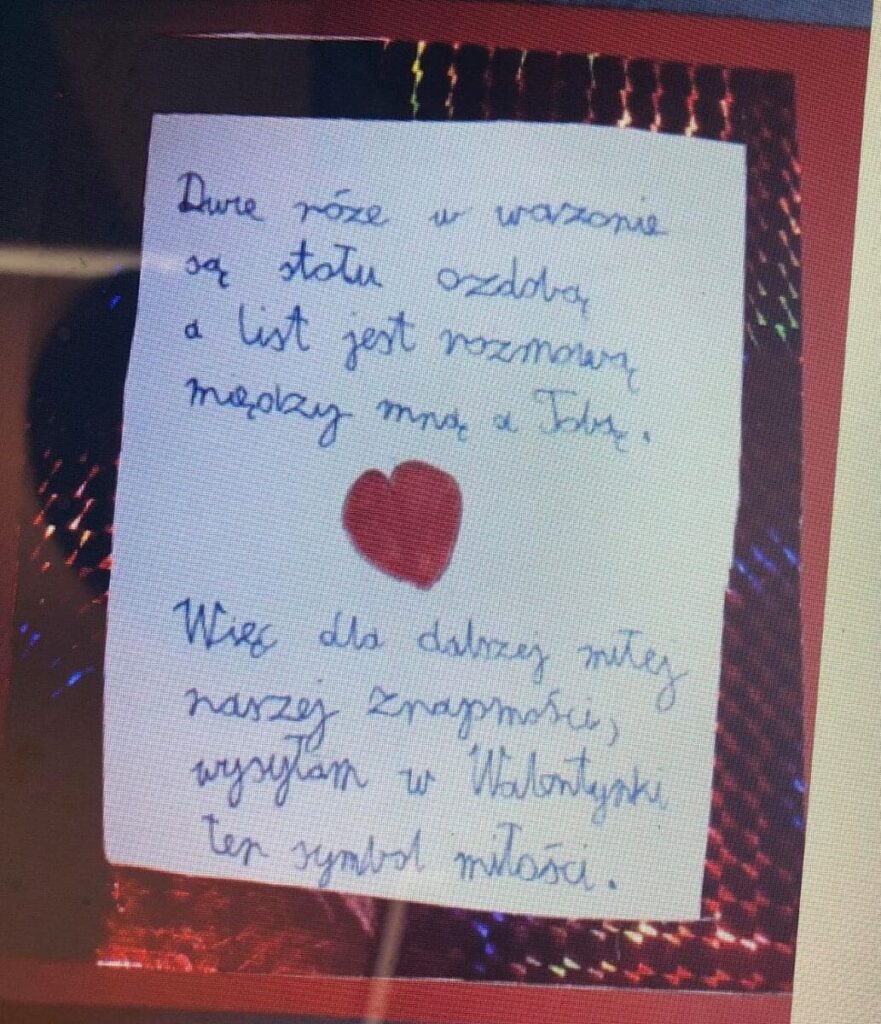 Dwie róże w wazonie
są stołu ozdobą
a list jest rozmową
między mną a Tobą.
Więc dla dalszej miłej
naszej znajomości,
wysyłam w Walentynki
ten symbol miłości.